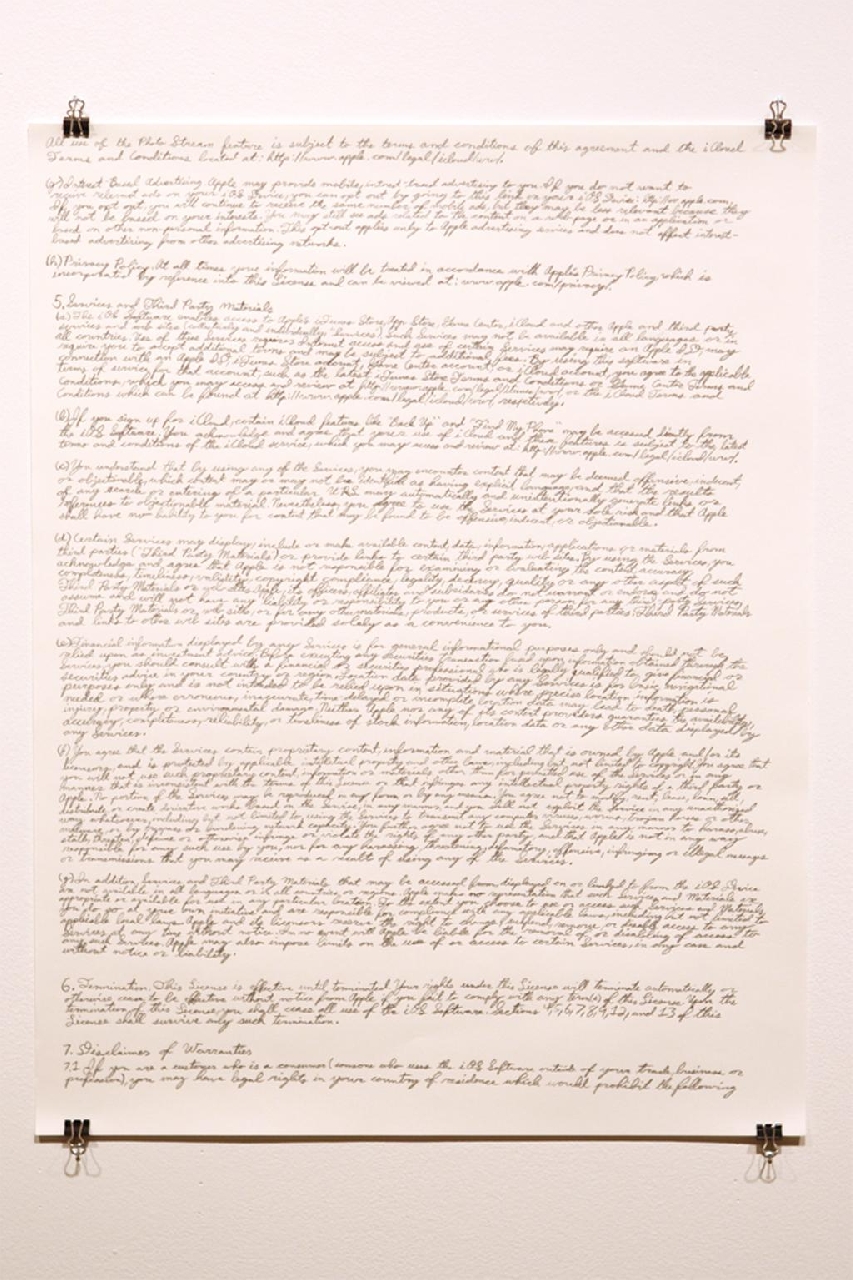 All use of the Photo Stream feature is subject to the terms and conditions of this agreement and the iCloud
Terms and Conditions located at: http://www.apple.com/legal/icloud/ww/.
(g) Interest-Based Advertising. Apple may provide mobile, interest-based advertising to you. If you do not want to
receive relevant ads on your iOS Device, you can opt out by going to this link on your iOS Device: http://oo.apple.com.
If you opt out, you will continue to receive the same number of mobile ads, but they may be less relevant because they
will not be based on your interests. You may still see ads related to the content on a web page or in an application or
based on other non-personal information. This opt-out applies only to Apple advertising services and does not affect interest-
based advertising from other advertising networks.
(h) Privacy Policy. At all times your information will be treated in accordance with Apple's Privacy Policy, which is
incorporated by reference into this License and can be viewed at: www.apple.com/privacy/.
5. Services and Third Party Materials
(a) The iOS Software enables access to Apple's iTunes Store, App Store, Game Center, iCloud and other Apple and third party
services and web sites (collectively and individually, "Services"). Such Services may not be available in all languages or in
all countries. Use of these Services requires Internet access and use of certain Services may require an Apple ID, may
require you to accept additional terms and may be subject to additional fees. By using this software in
connection with an Apple ID, iTunes Store account, Game Center account, or iCloud account, you agree to the applicable
terms of service for that account, such as the latest iTunes Store Terms and Conditions or Game Center Terms and
Conditions, which you may access and review at http://www.apple.com/legal/itunes/ww/, or the iCloud Terms and
Conditions which can be found at http://www.apple.com/legal/icloud/ww/, respectively.
(b) If you sign up for iCloud, certain iCloud features like "Back Up" and "Find My Phone" may be accessed directly from
the iOS Software. You acknowledge and agree that your use of iCloud and these features is subject to the latest
terms and conditions of the iCloud service, which you may access and review at: http://www.apple.com/legal/icloud/ww/.
(c) You understand that by using any of the Services, you may encounter content that may be deemed offensive, indecent,
or objectionable, which content may or may not be identified as having explicit language, and that the results
of any search or entering of a particular URL may automatically and unintentionally generate links or
references to objectionable material. Nevertheless, you agree to use the Services at your sole risk and that Apple
shall have no liability to you for content that may be found to be offensive, indecent, or objectionable.
(d) Certain Services may display, include or make available content, data, information, applications or materials from
third parties ("Third Party Materials") or provide links to certain third party web sites. By using the Services, you
acknowledge and agree that Apple is not responsible for examining or evaluating the content, accuracy,
completeness, timeliness, validity, copyright compliance, legality, decency, quality or any other aspect of such
Third Party Materials or web sites. Apple, its officers, affiliates and subsidiaries do not warrant or endorse and do not
assume and will not have any liability or responsibility to you or any other person for any third-party Services,
Third Party Materials or web sites, or for any other materials, products, or services of third parties. Third Party Materials
and links to other web sites are provided solely as a convenience to you.
(e) Financial information displayed by any Services is for general informational purposes only and should not be
relied upon as investment advice. Before executing any securities transaction based upon information obtained through the
Services, you should consult with a financial or securities professional who is legally qualified to give financial or
securities advice in your country or region. Location data provided by any Services is for basic navigational
purposes only and is not intended to be relied upon in situations where precise location information is
needed or where erroneous, inaccurate, time-delayed or incomplete location data may lead to death, personal
injury, property or environmental damage. Neither Apple nor any of its content providers guarantees the availability,
accuracy, completeness, reliability, or timeliness of stock information, location data or any other data displayed by
any Services.
(f) You agree that the Services contain proprietary content, information and material that is owned by Apple and/or its
licensors, and is protected by applicable intellectual property and other laws, including but not limited to copyright. You agree that
you will not use such proprietary content, information or materials other than for permitted use of the Services or in any
manner that is inconsistent with the terms of this License or that infringes any intellectual property rights of a third party or
Apple. No portion of the Services may be reproduced in any form or by any means. You agree not to modify, rent, lease, loan, sell,
distribute, or create derivative works based on the Services, in any manner, and you shall not exploit the Services in any unauthorized
way whatsoever, including but not limited to, using the Services to transmit any computer viruses, worms, trojan horses or other
malware, or by trespass or burdening network capacity. You further agree not to use the Services in any manner to harass, abuse,
stalk, threaten, defame or otherwise infringe or violate the rights of any other party, and that Apple is not in any way
responsible for any such use by you, nor for any harassing, threatening, defamatory, offensive, infringing or illegal messages
or transmissions that you may receive as a result of using any of the Services.
(g) In addition, Services and Third Party Materials that may be accessed from, displayed on or linked to from the iOS Device
are not available in all languages or in all countries or regions. Apple makes no representation that such Services and Materials are
appropriate or available for use in any particular location. To the extent you choose to use or access such Services and Materials,
you do so at your own initiative and are responsible for compliance with any applicable laws, including but not limited to
applicable local laws. Apple and its licensors reserve the right to change, suspend, remove, or disable access to any
Services at any time without notice. In no event will Apple be liable for the removal of or disabling of access to
any such Services. Apple may also impose limits on the use of or access to certain Services, in any case and
without notice or liability.
6. Termination. This License is effective until terminated. Your rights under this License will terminate automatically or
otherwise cease to be effective without notice from Apple if you fail to comply with any term(s) of this License. Upon the
termination of this License, you shall cease all use of the iOS Software. Sections 4, 5, 6, 7, 8, 9, 12, and 13 of this
License shall survive any such termination.
7. Disclaimer of Warranties
7.1 If you are a customer who is a consumer (someone who uses the iOS Software outside of your trade, business or
profession), you may have legal rights in your country of residence which would prohibit the following